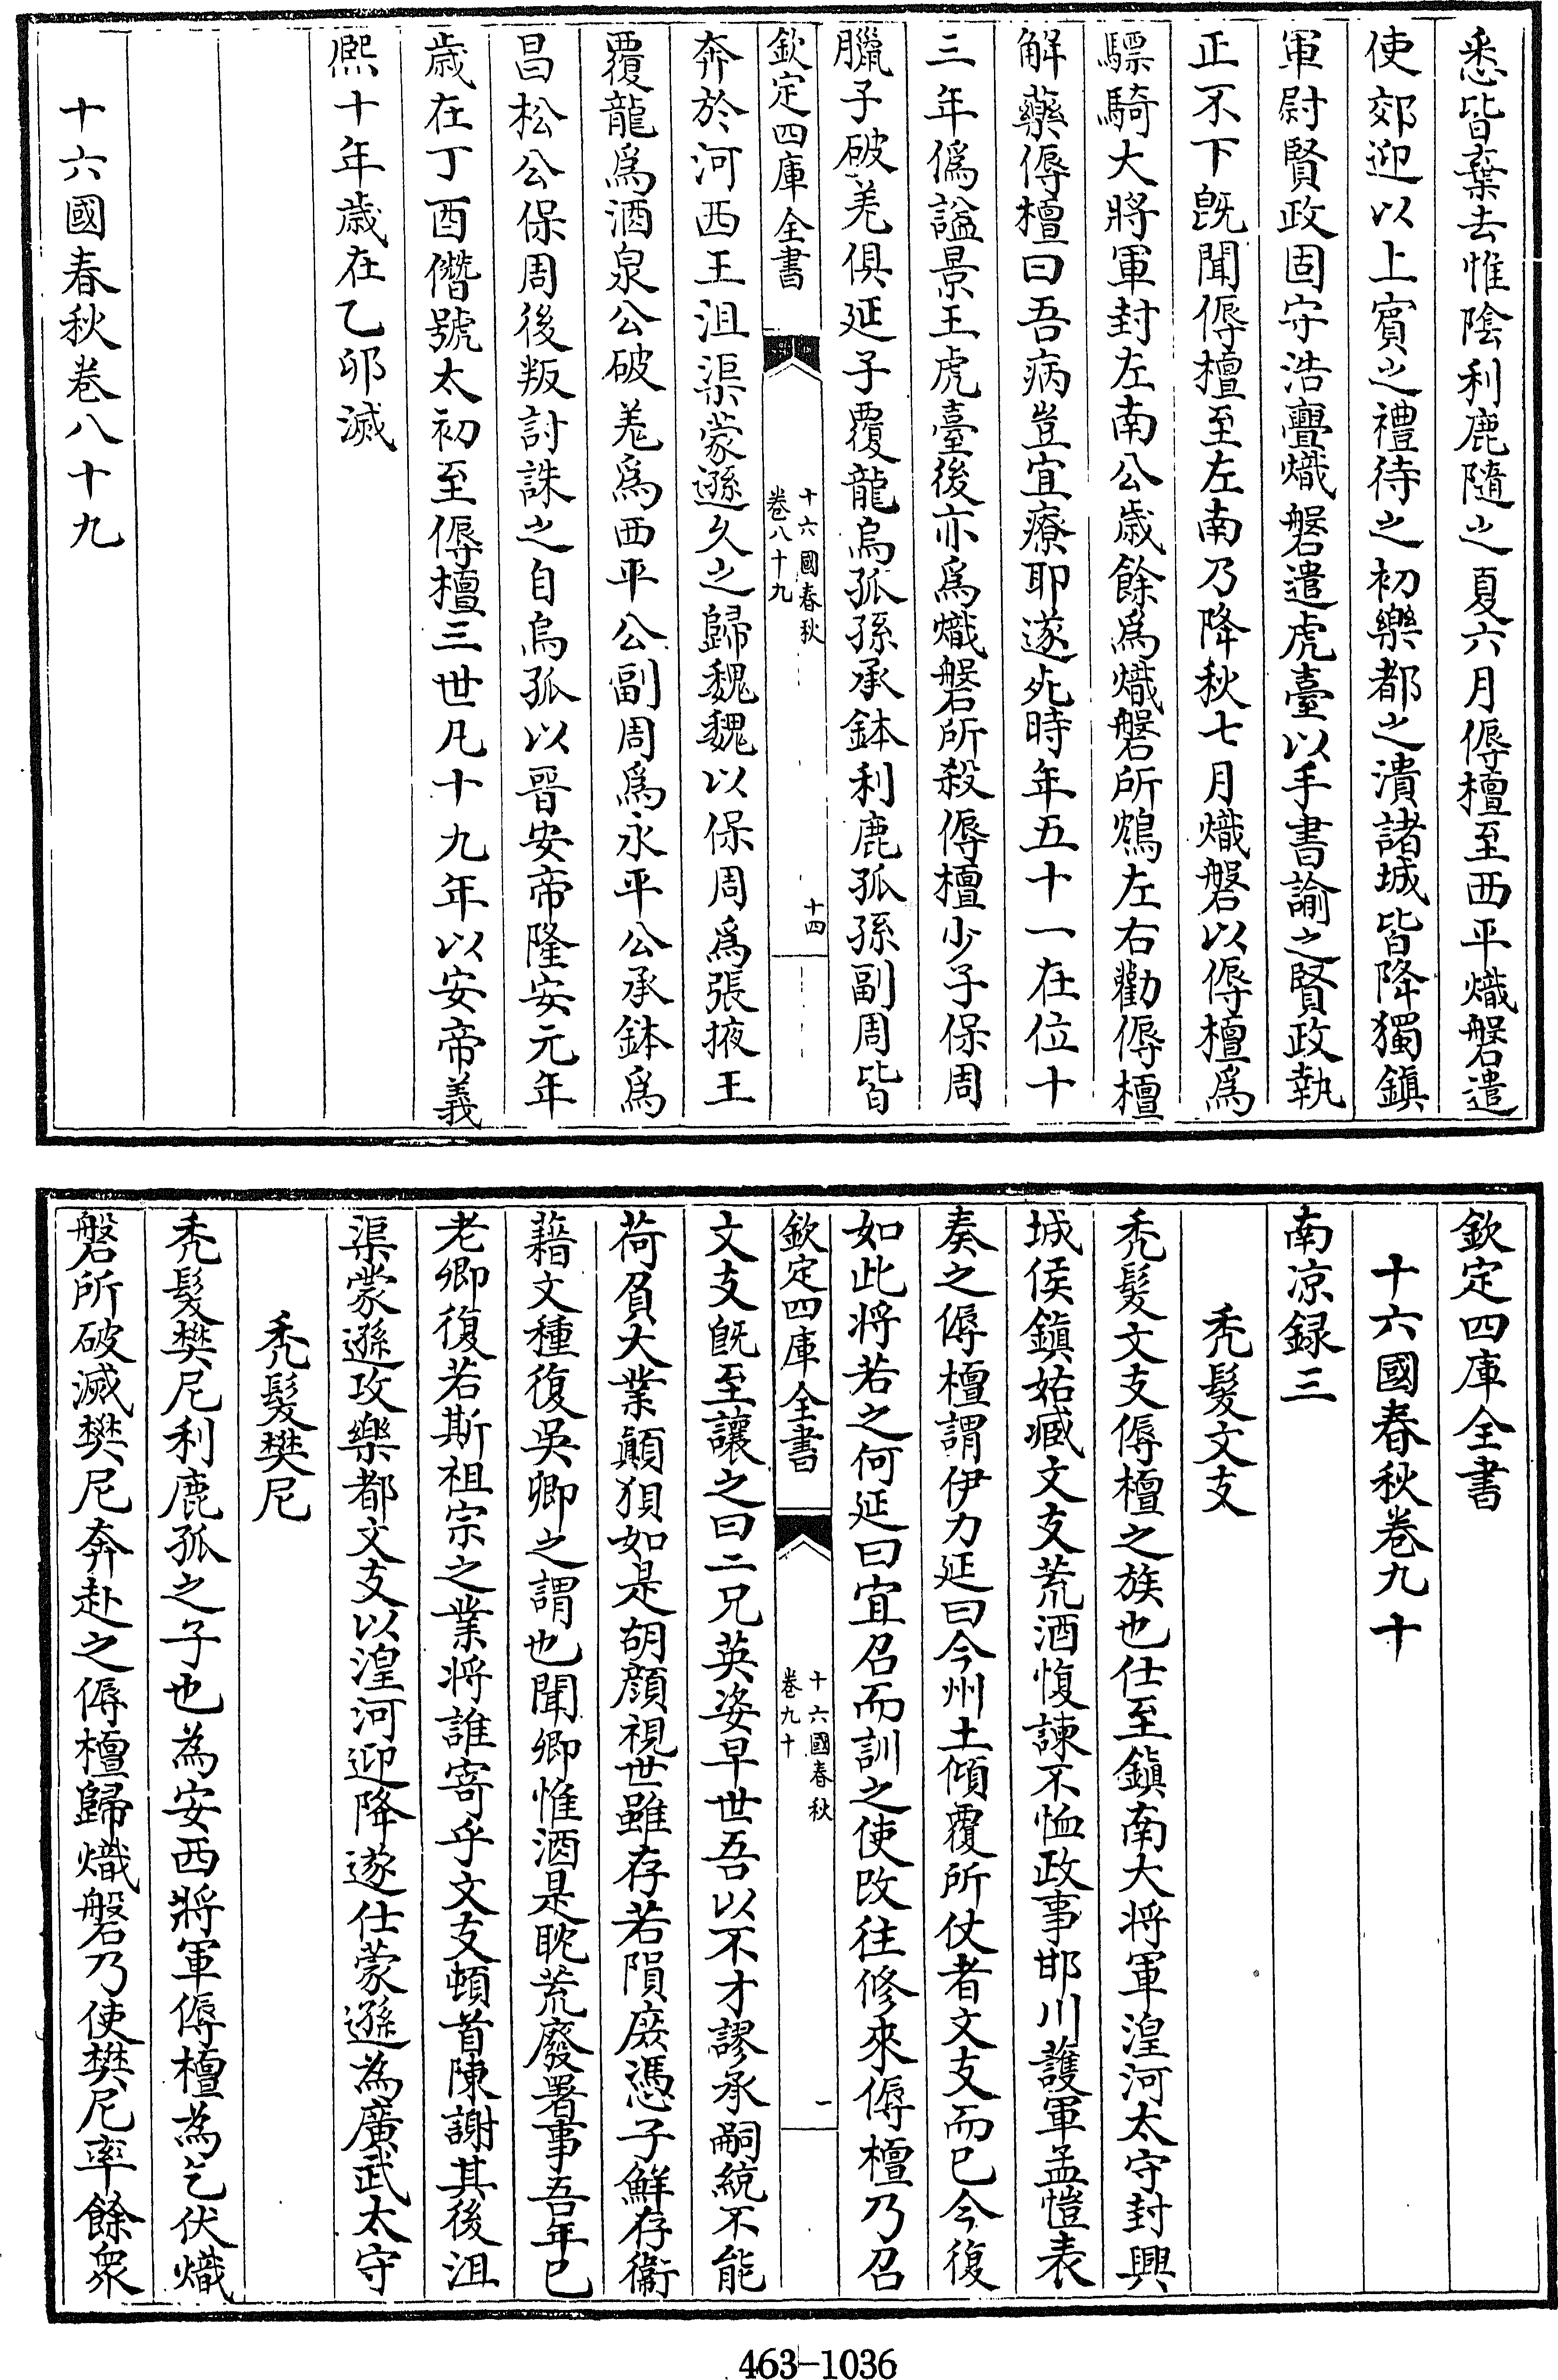 悉皆棄去惟陰利鹿隨之夏六月傉檀至西平熾磐遣
使郊迎以上賓之禮待之初樂都之潰諸城皆降獨鎮
軍尉賢政固守浩亹熾磐遣虎臺以手書諭之賢政執
正不下旣聞傉檀至左南乃降秋七月熾磐以傉檀爲
驃騎大將軍封左南公歲餘爲熾磐所鴆左右勸傉檀
解藥傉檀曰吾病豈宜療耶遂死時年五十一在位十
三年僞諡景王虎臺後亦爲熾磐所殺傉檀少子保周
臘子破羌俱延子覆龍烏孤孫承鉢利鹿孤孫副周皆
欽定四庫全書
十六國春秋
卷八十九
十四
奔於河西王沮渠蒙遜久之歸魏魏以保周爲張掖王
覆龍爲酒泉公破羌爲西平公副周爲永平公承鉢爲
昌松公保周後叛討誅之自烏孤以晉安帝隆安元年
歲在丁酉僭號太初至傉檀三世凡十九年以安帝義
熙十年歲在乙卯滅
十六國春秋卷八十九
欽定四庫全書
十六國春秋卷九十
南凉録三
禿髮文支
禿髮文支傉檀之族也仕至鎮南大將軍湟河太守封興
城侯鎮姑臧文支荒酒愎諫不恤政事邯川護軍孟愷表
奏之傉檀謂伊力延曰今州土傾覆所仗者文支而已今復
如此將若之何延曰宜召而訓之使改往修來傉檀乃召
欽定四庫全書
十六國春秋
卷九十
一
文支旣至讓之曰二兄英姿早世吾以不才謬承嗣統不能
荷負大業顛狽如是胡顏視世雖存若隕庶憑子鮮存衞
藉文種復吳卿之謂也聞卿惟酒是耽荒廢署事吾年已
老卿復若斯祖宗之業將誰寄乎文支頓首陳謝其後沮
渠蒙遜攻樂都文支以湟河迎降遂仕蒙遜為廣武太守
禿髮樊尼
禿髮樊尼利鹿孤之子也為安西將軍傉檀為乞伏熾
磐所破滅樊尼奔赴之傉檀歸熾磐乃使樊尼率餘衆
463-1036